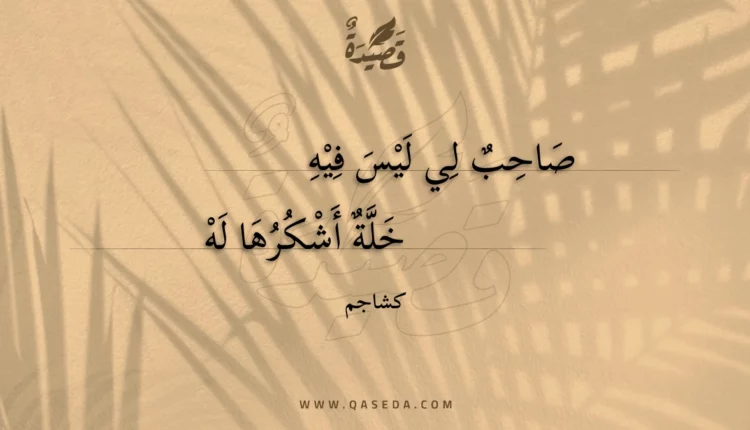 قَصِيْدَةٌ
صَاحِبٌ لِي لَيْسَ فِيْهِ
خَلَّةٌ أَشْكُرُهَا لَهْ
كشاجم
WWW.QASEDA.COM